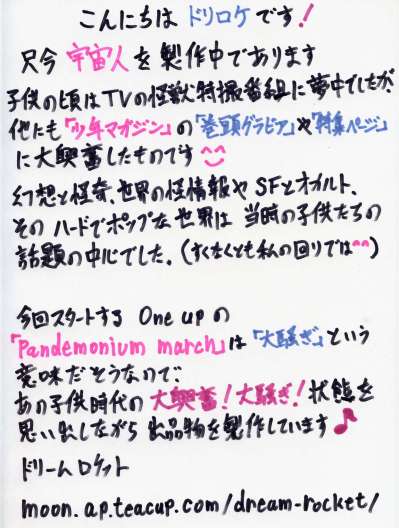 こんにちは ドリロケ です!
只今 宇宙人 を 製作中であります
子供の頃はTVの怪獣特撮番組に夢中でしたが、
他にも「少年マガジン」の「巻頭グラビア」や「特集ページ」
に大興奮したものです^^
幻想と怪奇、世界の怪情報や SFとオカルト、
その ハードでポップな 世界は 当時の子供たちの
話題の中心でした。(すくなくとも私の回りでは^^)
今回スタートする One up の
「Pandemonium march」は「大騒ぎ」という
意味だそうなので、
あの子供時代の 大興奮!大騒ぎ!状態を
思い出しながら 出品物を製作しています♪
ドリームロケット
moon.ap.teacup.com/dream-rocket/